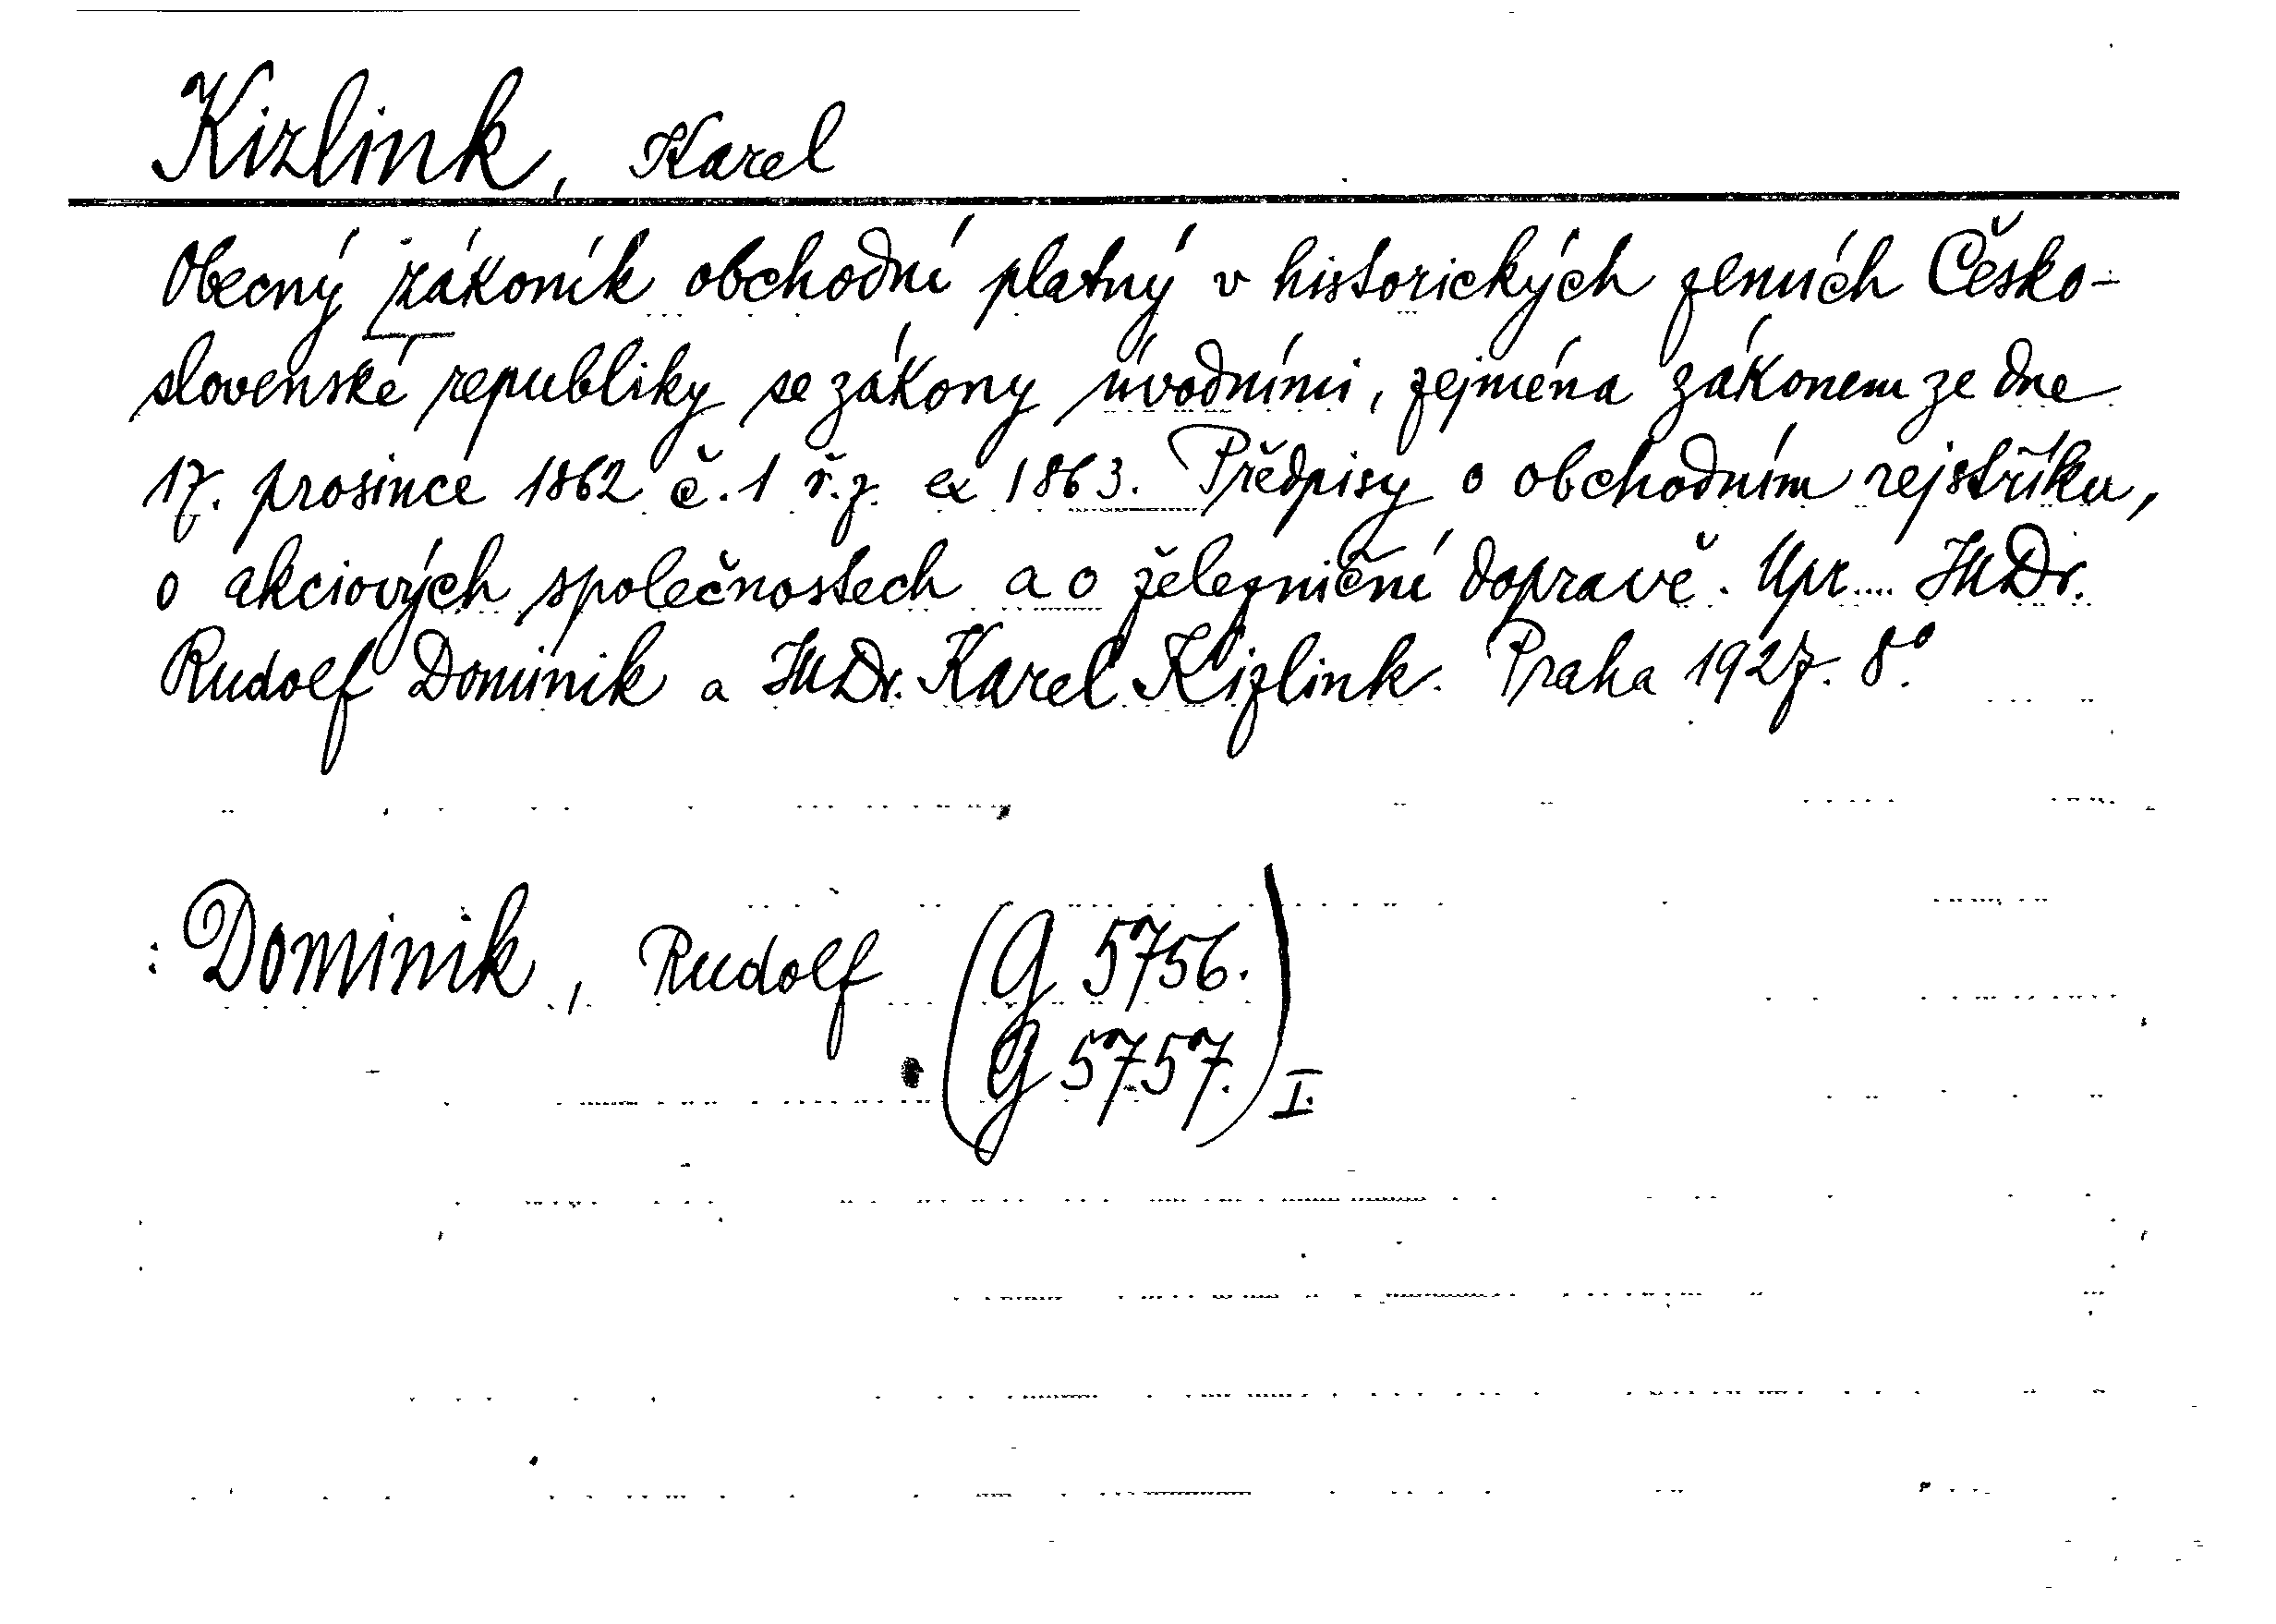 Kizlink, Karel
Obecný zákoník obchodní platný v historických zemích Česko-
slovenské republiky se zákony úvodními, zejména zákonem ze dne
17. prosince 1862 č. 1 ř.z. ex 1863. Předpisy o obchodním rejstříku,
o akciových společnostech a o železniční dopravě. Upr.... JUDr.
Rudolf Dominik a JUDr. Karel Kizlink. Praha 1927. 8°.
: Dominik, Rudolf (G 5756.
G 5757.) I.